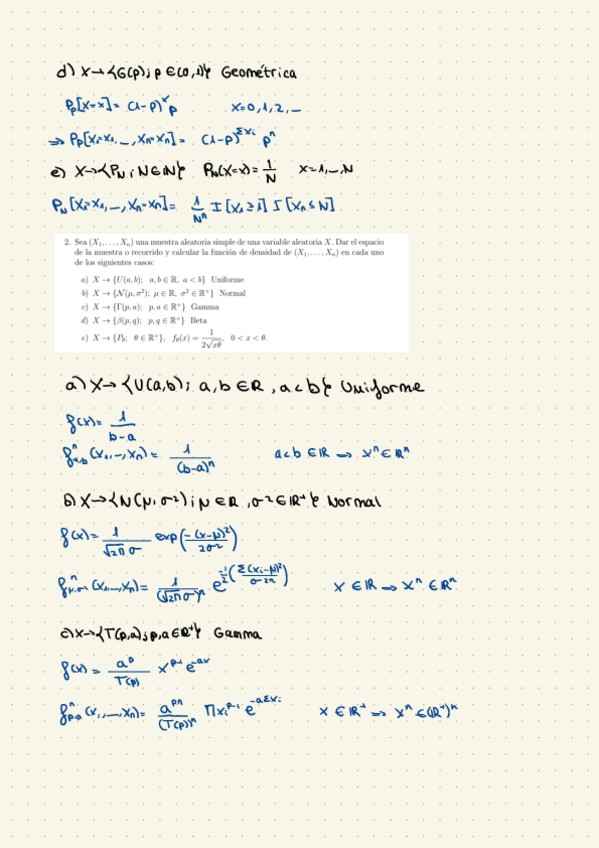 d) X→{G(p); p∈(0,1)} Geométrica
Pp[X=x]= (1-p)^x p x=0,1,2,...
⇒ Pp[X₁=x₁,...,Xn=xn]= (1-p)^Σxi p^n
e) X→{P_N; N∈ℕ} P_N(X=x)= 1/N x=1,...,N
P_N[X₁=x₁,...,Xn=xn]= 1/N^n I[X₁≥1] I[Xn≤N]
2. Sea (X₁, . . . , Xₙ) una muestra aleatoria simple de una variable aleatoria X. Dar el espacio
de la muestra o recorrido y calcular la función de densidad de (X₁, . . . , Xₙ) en cada uno
de los siguientes casos:
a) X → {U(a, b); a, b ∈ ℝ, a < b} Uniforme
b) X → {N(μ, σ²); μ ∈ ℝ, σ² ∈ ℝ⁺} Normal
c) X → {Γ(p, a); p, a ∈ ℝ⁺} Gamma
d) X → {β(p, q); p, q ∈ ℝ⁺} Beta
e) X → {Pθ; θ ∈ ℝ⁺}, fθ(x) = 1/(2√(xθ)), 0 < x < θ.
a) X→{U(a,b); a,b∈ℝ, a<b} Uniforme
f(x)= 1/(b-a)
f^n_{a,b}(x₁,...,xn)= 1/(b-a)^n a<b∈ℝ → X^n∈ℝ^n
b) X→{N(μ,σ²); μ∈ℝ, σ²∈ℝ⁺} Normal
f(x)= 1/(√2π σ) exp(-(x-μ)²/2σ²)
f^n_{μ,σ²}(x₁,...,xn)= 1/(√2π σ)^n e^{-1/2(Σ(xi-μ)²/σ^2n)} X∈ℝ → X^n∈ℝ^n
c) X→{Γ(p,a); p,a∈ℝ⁺} Gamma
f(x)= a^p/Γ(p) x^{p-1} e^{-ax}
f^n_{p,a}(x₁,...,xn)= a^{pn}/(Γ(p))^n Πxi^{p-1} e^{-aΣxi} X∈ℝ⁺ → X^n∈(ℝ⁺)^n